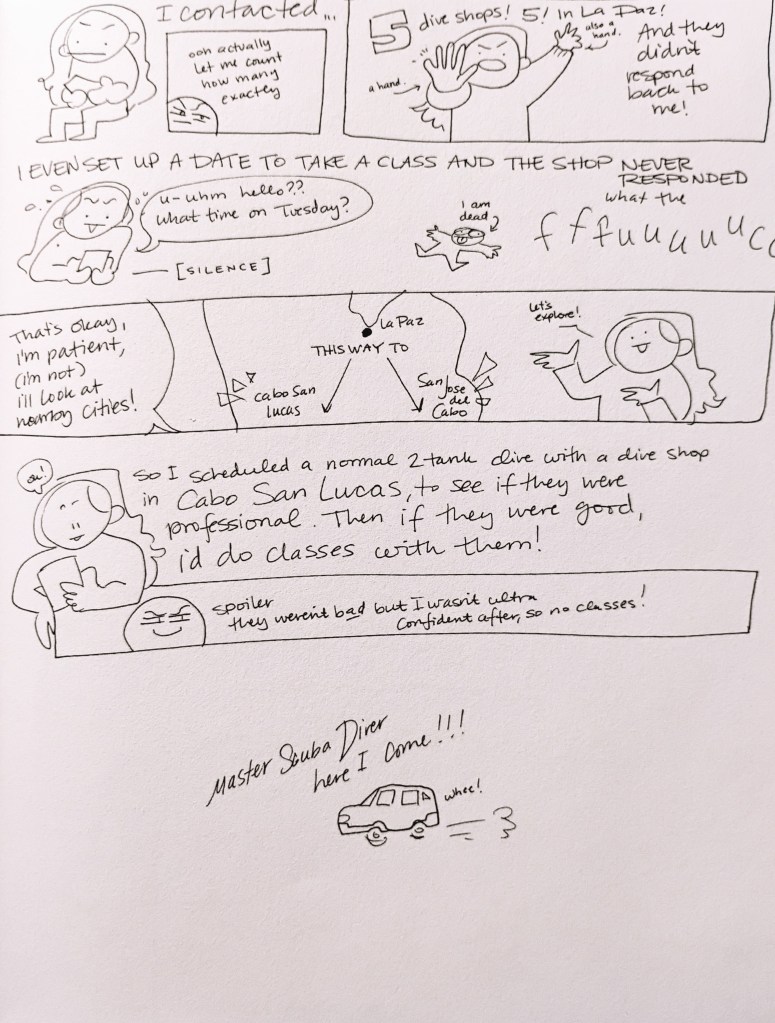 I contacted...
ooh actually
let me count
how many
exactly
5 dive shops! 5! In La Paz!
a hand.
also a
hand.
And they
didn't
respond
back to
me!
I EVEN SET UP A DATE TO TAKE A CLASS AND THE SHOP NEVER
RESPONDED
u-uhm hello??
what time on Tuesday?
[SILENCE]
I am
dead
what the
fffuuuuucc
That's okay,
I'm patient,
(i'm not)
i'll look at
nearby cities!
La Paz
THIS WAY TO
Cabo San
Lucas
San
Jose
del
Cabo
Let's
explore!
ou!
So I scheduled a normal 2-tank dive with a dive shop
in Cabo San Lucas, to see if they were
professional. Then if they were good,
i'd do classes with them!
spoiler
they weren't bad but I wasn't ultra
confident after, so no classes!
Master Scuba Diver
here I come!!!
whee!